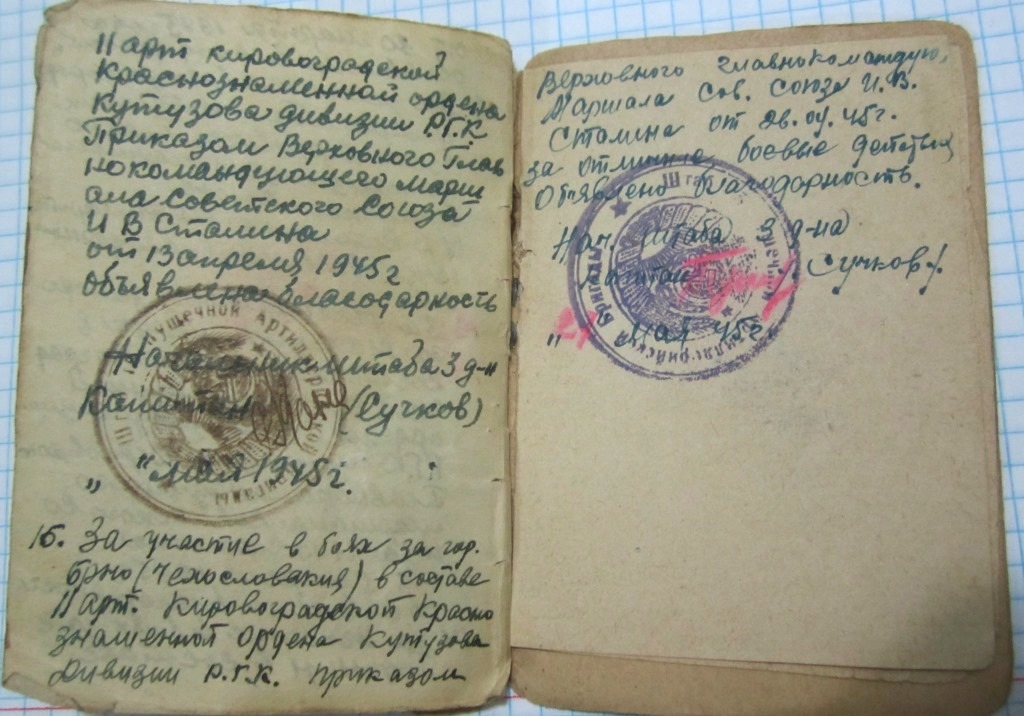 11 арт кировоградской
краснознаменной ордена
Кутузова дивизии Р.Г.К
Приказом Верховного Глав
нокомандующего марш
ала Советского Союза
И В Сталина
от 13 апреля 1945г
объявлена благодарность
Начальник штаба 3 д-н
Капитан (Сучков)
„ “ мая 1945г.
16. За участие в боях за гор.
брно (Чехословакия) в составе
11 арт. Кировоградской Красно
знаменной ордена Кутузова
Дивизии Р.Г.К. приказом
Верховного главнокомандую,
Маршала Сов. Союза И.В.
Сталина от 26.04.45г.
за отличные боевые действия
Объявлено благодарность.
Нач. штаба 3 д-на
капитан /Сучков/
„ мая 45г
пушечной артиллерийской бригады
III
пушечной артиллерийская бригады
III